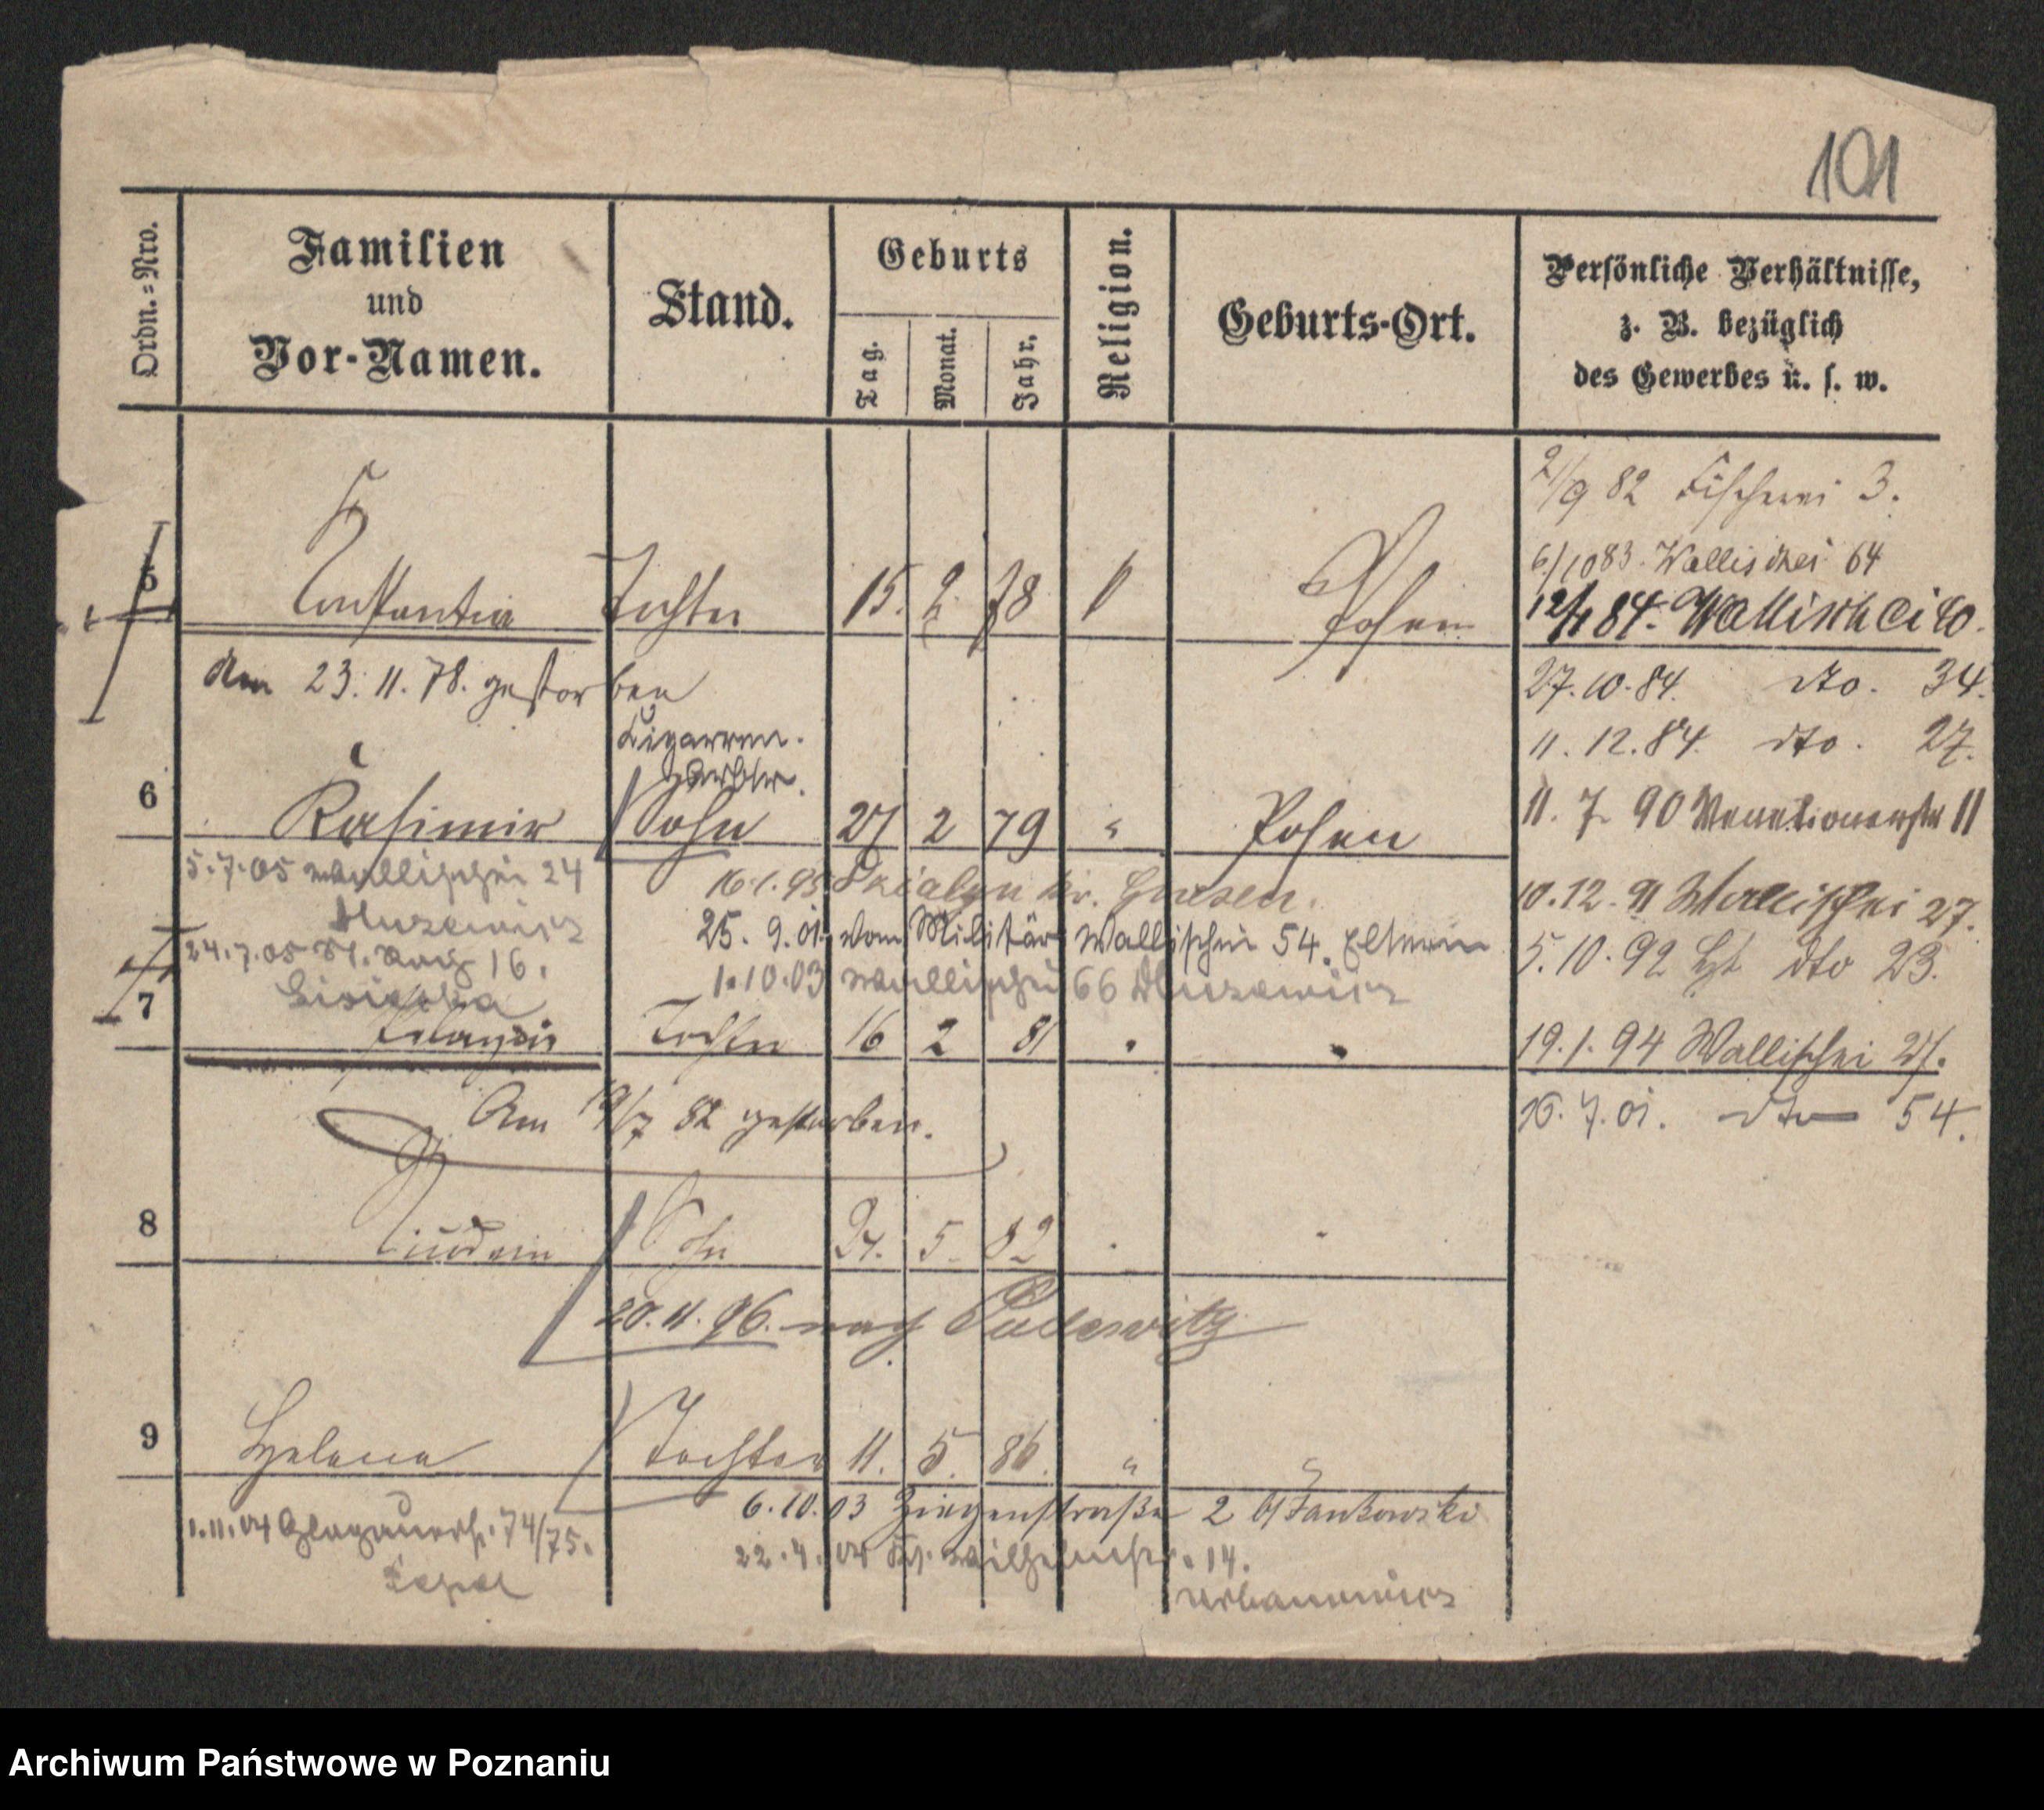 101
Ordn.-Nro.
Familien
und
Vor-Namen.
Stand.
Geburts
Tag.
Monat.
Jahr.
Religion.
Geburts-Ort.
Persönliche Verhältnisse,
z. B. bezüglich
des Gewerbes u. s. w.
2/9 82 Fischerei 3.
6/10 83. Wallischei 64
5 Constantia Tochter 15. 2. 78 Posen
84. Wallischei
den 23. 11. 78. gestorben
27. 10. 84. dto. 34.
Cigarren-
11. 12. 84. dto. 27.
6 Kasimir Sohn 27 2 79 " Posen
11. 7. 90 Venetianerstr 11
5.7.05 Wallischei 24
16.1.95 Gnesen.
10. 12. 91 Wallischei 27.
25. 9. 01. vom Militär Wallischei 54. Eltern
24.7.05 16.
5. 10. 92 dto 23.
1.10.03 Wallischei 66
7 Tochter 16 2 81 " "
19. 1. 94 Wallischei 27.
Am 19/7 82 gestorben.
16. 7. 01. dto 54.
8 Sohn 24. 5. 82 " "
20. 11. 96. nach Pudewitz
9 Helena Tochter 11. 5. 86. " "
6. 10. 03 Ziegenstraße 2 b/ Jankowski
1.11.04 Glogauerstr. 74/75.
22. 4. 04 Wilhelmstr. 14.
Urbanowicz
Archiwum Państwowe w Poznaniu